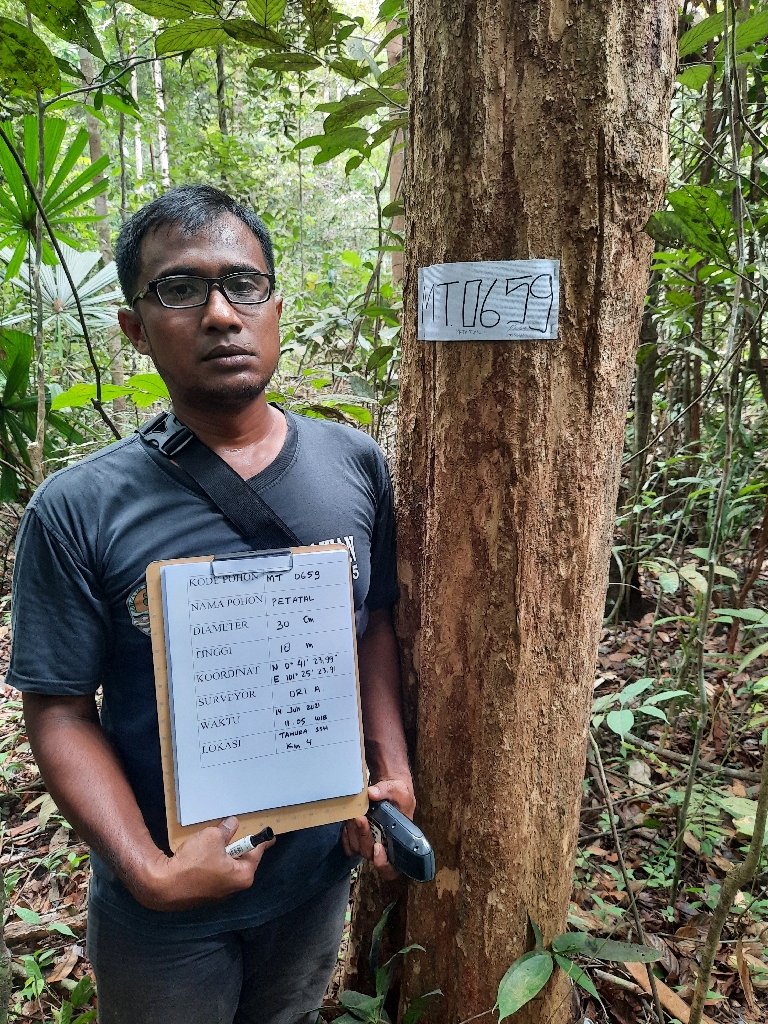 MT 0659
KODE POHON MT 0659
NAMA POHON PETATAL
DIAMETER 30 Cm
TINGGI 10 m
KOORDINAT N 0° 41' 23.99"
E 101° 25' 23.91"
SURVEYOR ORI A
WAKTU 14 Juli 2021
11.05 WIB
LOKASI TAHURA SSH
Km 4